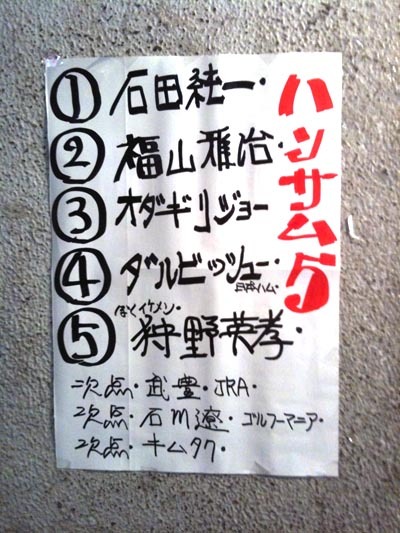 ハンサム5
① 石田純一・
② 福山雅治・
③ オダギリジョー
④ ダルビッシュー・
日本ハム・
ぼくイケメン・
⑤ 狩野英孝・
二次点・武豊・JRA・
2次点・石川遼・ゴルフーマニア・
2次点・キムタク・